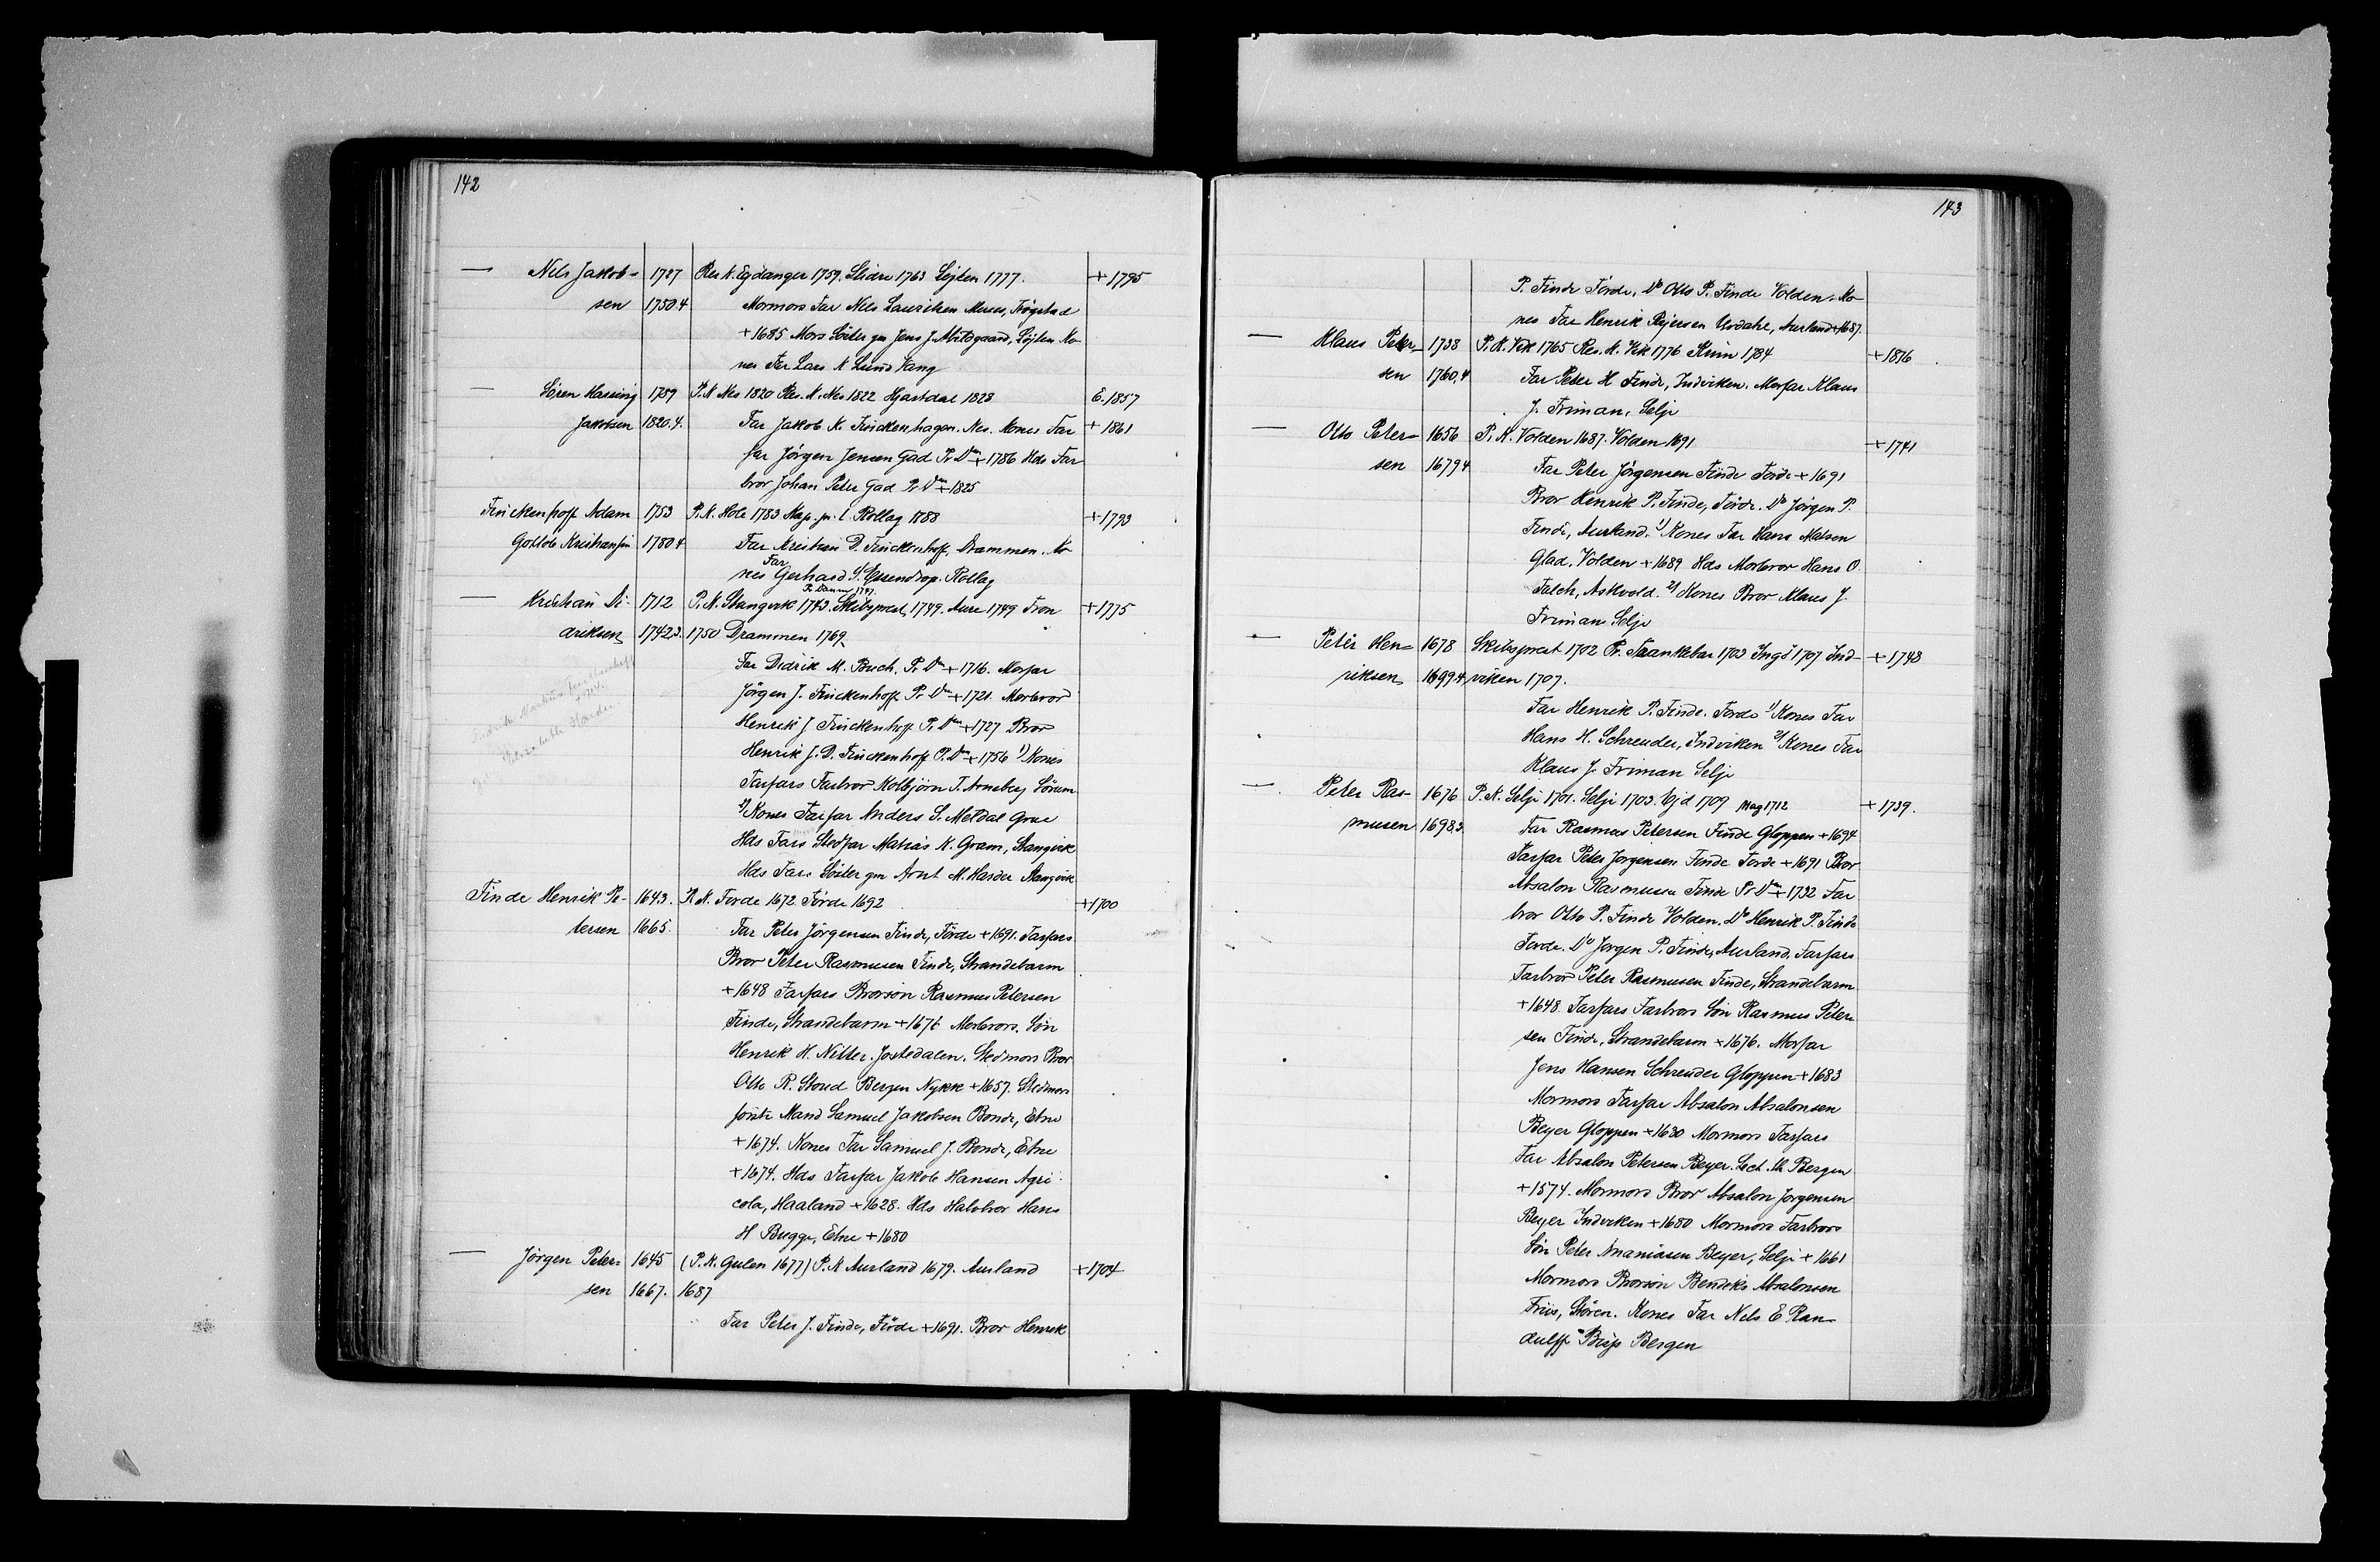 142
— Nils Jakob- 1727 Res. K. Egdanger 1759. Slidre 1763 Løjten 1777. + 1795
sen 1750.4 Mormors Far Nils Lauritsen Muus, Trøgstad
+ 1685 Mors Søster gm Jens J. Mitsgaard, Løjten Ko-
nes Far Lars N Lund Vang
— Søren Hassing 1789 P. K Nes 1820 Res. K. Nes 1822 Hjartdal 1828 E. 1857
Jakobsen 1820.4. Far Jakob K. Finckenhagen. Nes. Kones Far + 1861
far Jörgen Jensen Gad Pr. Dm + 1786 Hds Far
bror Johan Peter Gad Pr. Dm + 1825
Finckenhoff Adam 1753 P. K. Hole 1783 Kap. p. l. Rollag 1788 + 1793
Gottlob Kristiansen 1780.4 Far Kristian D. Finckenhoff, Drammen. Ko-
Far
nes Gerhard S. Essendrop. Rollag
Pr. Danm 1747.
— Kristian Di- 1712 P. K. Stangvik 1743. Skibsprest, 1749. Aure 1749 Tron + 1775
driksen 1742.3. 1750 Drammen 1769
Far Didrik M. Buch. Pr. Dm + 1716. Morfar
Jörgen J. Finckenhoff Pr. Dm + 1721. Morbror
Henrik J Finckenhoff Pr. Dm + 1727 Bror
Henrik J. D. Finckenhoff Pr. Dm + 1756 1) Kones
Farfars Farbror Kolbjörn T. Arneberg Sörum
2) Kones Farfar Anders S. Meldal Grue
Hds Fars Stedfar Matias K. Gram, Stangvik
Hds Fars Søster gm Arnt M. Harder Stangvik
Finde Henrik Pe- 1643. P. K. Førde 1672 Förde 1692 + 1700
tersen 1665. Far Peter Jörgensen Finde, Förde + 1691. Farfars
Bror Peter Rasmussen Finde, Strandebarm
+ 1648 Farfars Brorsön Rasmus Petersen
Finde, Strandebarm + 1676 Morbrors. Søn
Henrik H. Nitter. Jostedalen. Stedmors Bror
Otto R. Stoud Bergen Nykk + 1657. Stedmors
förste Mand Samuel Jakobsen Bonde, Etne
+ 1674. Kones Far Samuel J. Bonde, Etne
+ 1674. Hds Farfar Jakob Hansen Agri-
cola, Haaland + 1628. Hds Halvbror Hans
H Bugge, Etne + 1680
— Jörgen Peter- 1645 (P. K. Gulen 1677) P. K Aurland 1679. Aurland + 1704
sen 1667. 1687
Far Peter J. Finde, Förde + 1691. Bror Henrik
143
P. Finde Förde, Do Otto P. Finde Volden. Ko-
nes Far Henrik Rejersen Urdahl, Aurland + 1687.
— Klaus Peter- 1738 P. K. Vik 1765 Res. K. Vik 1776 Kinn 1784 + 1816
sen 1760,4 Far Peter H Finde, Indviken. Morfar Klaus
J. Friman, Selje
— Otto Peter- 1656 P. K. Volden 1687. Volden 1691 + 1741
sen 1679 4 Far Peter Jörgensen Finde Förde + 1691
Bror Henrik P. Finde, Förde. Do Jörgen P.
Finde, Aurland. 1) Kones Far Hans Matsen
Glad, Volden + 1689 Hds Morbror Hans O
Falch, Askvold. 2) Kones Bror Klaus J.
Friman Selje
— Peter Hen- 1678 Skibsprest 1702 Pr. Trankebar 1703 Ingö 1707 Ind- + 1748
riksen 1699.4 viken 1707.
Far Henrik P. Finde. Førde 1) Kones Far
Hans H. Schreuder, Indviken 2) Kones Far
Klaus J. Friman Selje
— Peter Ras- 1676 P. K. Selje 1701. Selje 1703. Ejd 1709 Mag 1712 + 1739.
musen 1698.3. Far Rasmus Petersen Finde Gloppen + 1694
Farfar Peter Jörgensen Finde Førde + 1691 Bror
Absalon Rasmussen Finde Pr. Dm + 1732 Far
bror Otto P. Finde Volden. Do Henrik P. Finde
Førde. Do Jörgen P. Finde, Aurland. Farfars
Farbror Peter Rasmussen Finde, Strandebarm
+ 1648. Farfars Farbrors Søn Rasmus Peter-
sen Finde, Strandebarm + 1676. Morfar
Jens Hansen Schreuder Gloppen + 1683
Mormors Farfar Absalon Absalonsen
Beyer Gloppen + 1630 Mormors Farfars
Far Absalon Petersen Beyer. Lect. th. Bergen
+ 1574. Mormors Bror Absalon Jörgensen
Beyer Indviken + 1680 Mormors Farbrors
Sön Peter Ananiasen Beyer, Selje + 1661
Mormors Brorsön Bendiks Absalonsen
Friis, Stören. Kones Far Nils E Ran-
dulff Bisp Bergen